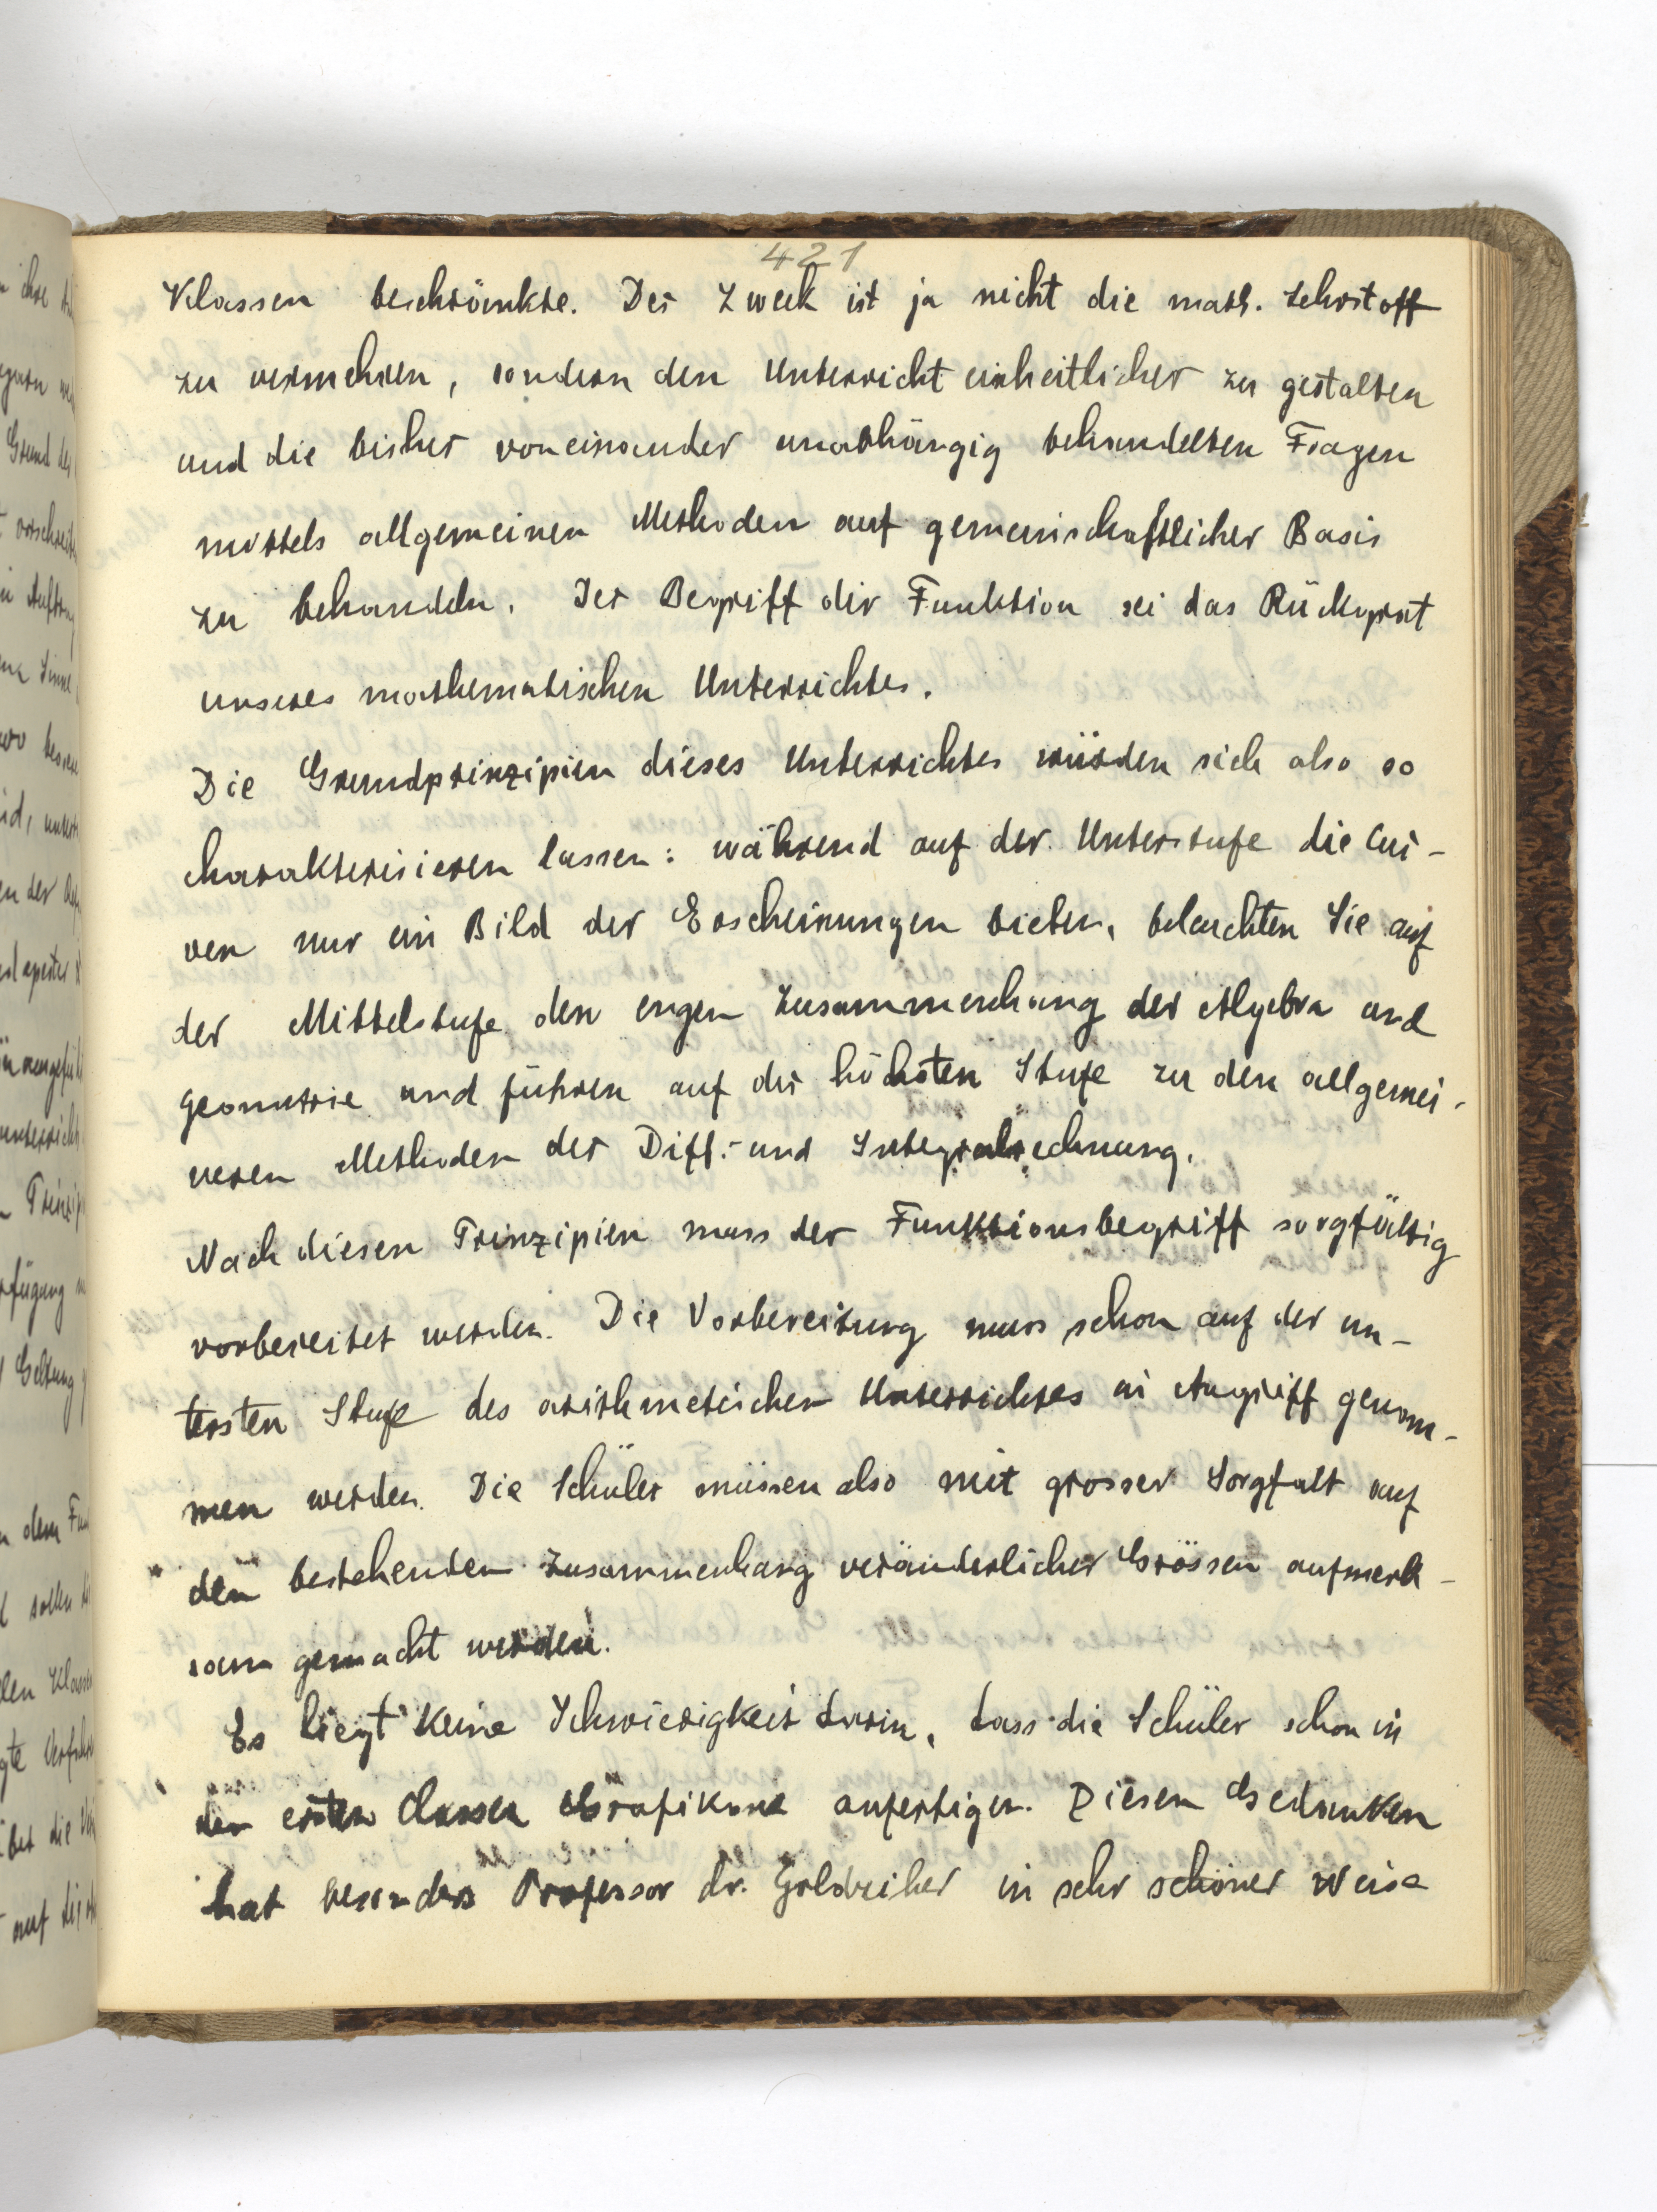 421
Klassen beschränkte. Der Zweck ist ja nicht die math. Lehrstoff
zu vermehren, sondern den Unterricht einheitlicher zu gestalten
und die bisher voneinander unabhängig behandelten Fragen
mittels allgemeinen Methoden auf gemeinschaftlicher Basis
zu behandeln. Der Begriff der Funktion sei das Rückgrat
unseres mathematischen Unterrichtes.
Die Grundprinzipien dieses Unterrichtes würden sich also so
charakterisieren lassen: während auf der Unterstufe die Cur-
ven nur ein Bild der Erscheinungen bieten, beleuchten Sie auf
der Mittelstufe den engen Zusammenhang der Algebra und
Geometrie und führen auf der höchsten Stufe zu den allgemei-
neren Methoden der Diff.- und Integralrechnung.
Nach diesen Prinzipien muss der Funktionsbegriff sorgfältig
vorbereitet werden. Die Vorbereitung muss schon auf der un-
tersten Stufe des arithmetischen Unterrichtes in Angriff genom-
men werden. Die Schüler müssen also mit grosser Sorgfalt auf
den bestehenden Zusammenhang veränderlicher Grössen aufmerk-
sam gemacht werden.
Es liegt keine Schwierigkeit darin, dass die Schüler schon in
den ersten Classen Grafikone anfertigen. Diesen Gedanken
hat besonders Professor dr. Goldzieher in sehr schöner Weise